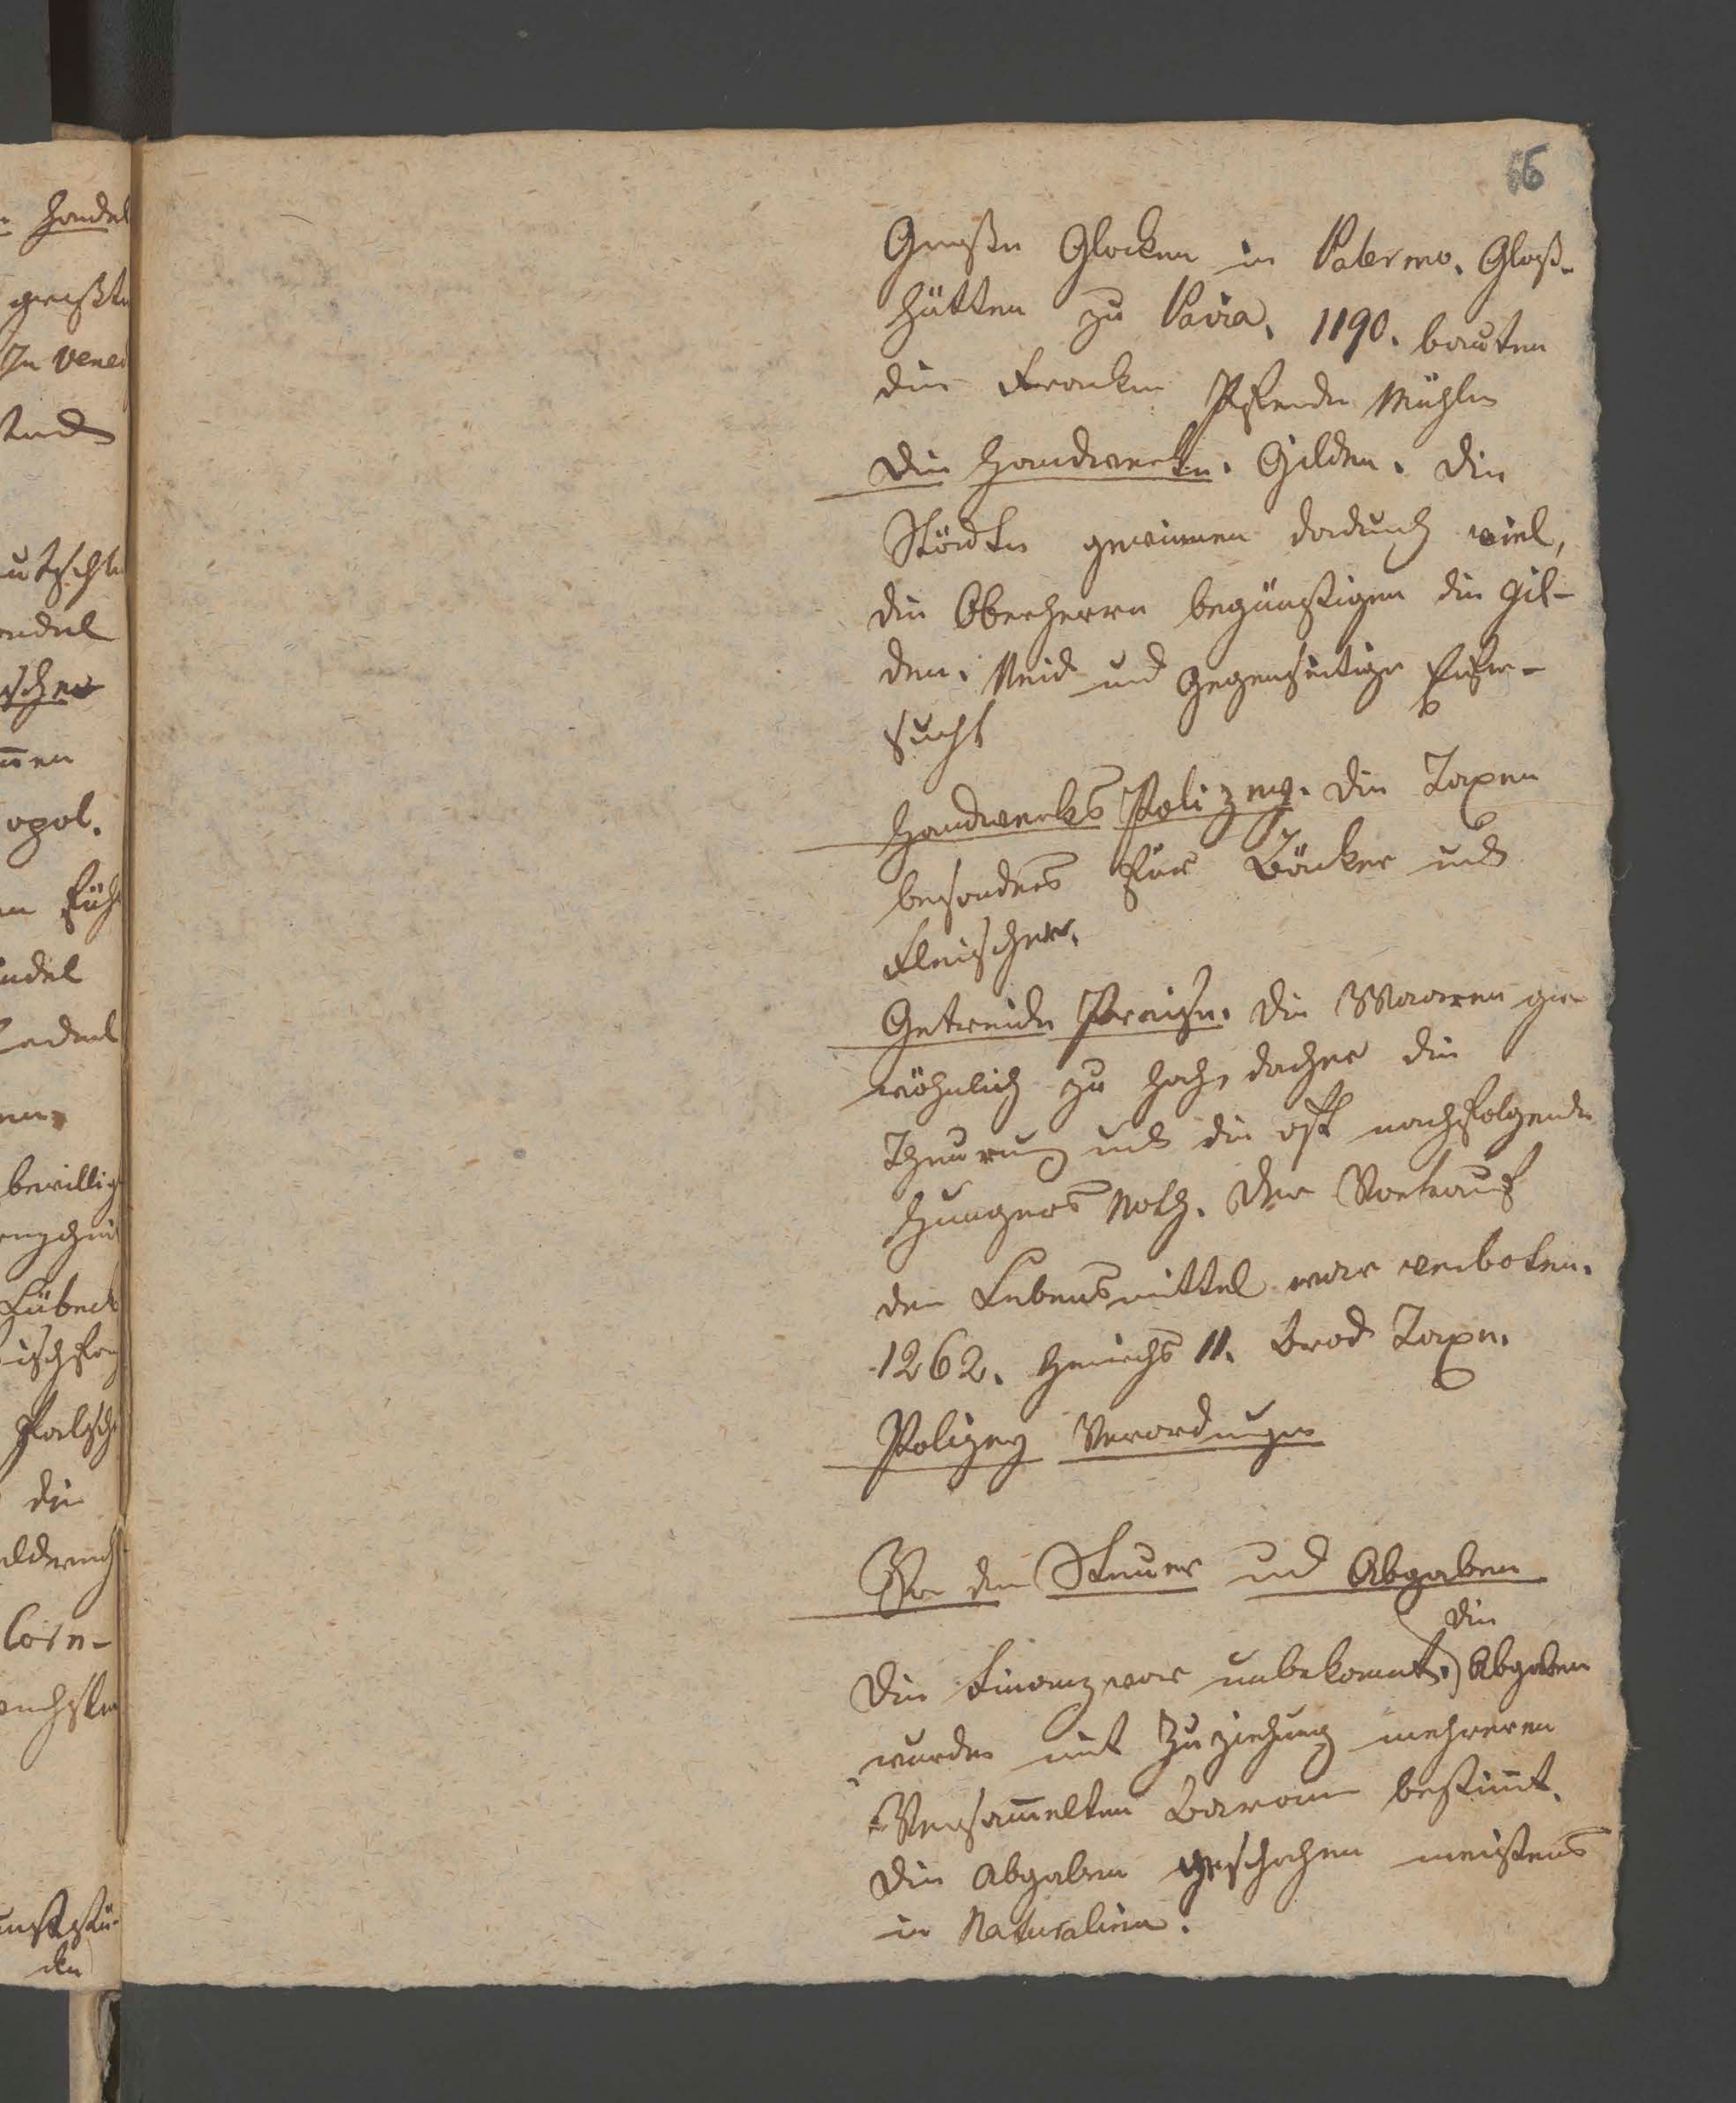 66
Große Glocken in Palermo. Glaß-
hütten zu Pavia. 1190. bauten
die Franken Pferde Mühlen
Die Handwerke. Gilden. Die
Städte gewinnen dadurch viel,
die Oberherrn begünstigen die Gil-
den. Neid und gegenseitige Eifer-
sucht
Handwerks Polizey. Die Taxen
besonders für Bäcker und
Fleischer.
Getreide Preise. Die Waaren ge
wöhnlich zu hoch, daher die
Theurung und die oft nachfolgende
Hungers Noth. Der Vorkauf
der Lebensmittel war verboten.
1262. Heinrichs II. Brod Taxe.
Polizey Verordnungen
Von den Steuer und Abgaben
die
Die Finanz war unbekannt. Abgaben
wurden mit Zuziehung mehreren
Versam̄elten Baronen bestim̄t.
Die Abgaben geschahen meistens
in Naturalien.
Handel
größte
In Vened
opol.
bewillig
Lübeck
die
den